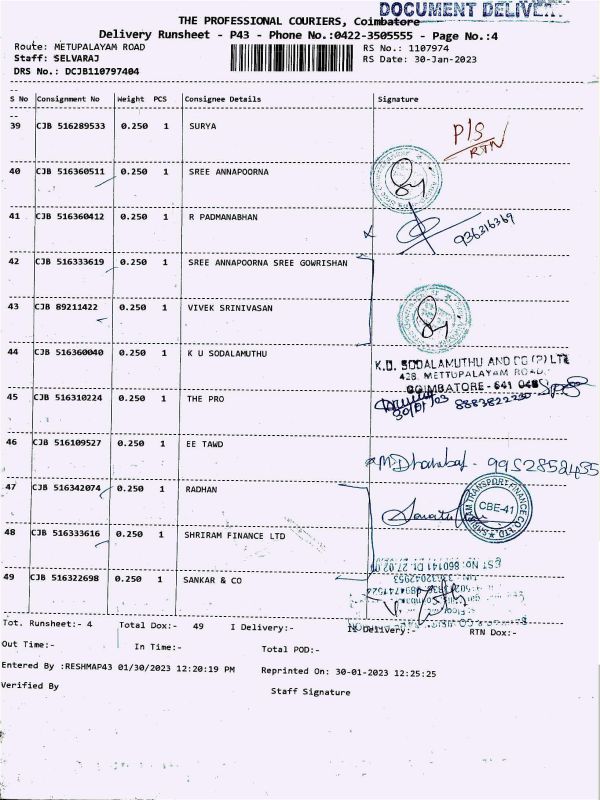 DOCUMENT DELIVE
THE PROFESSIONAL COURIERS, Coimbatore
Delivery Runsheet - P43 - Phone No.:0422-3505555 - Page No.:4
Route: METUPALAYAM ROAD RS No.: 1107974
Staff: SELVARAJ RS Date: 30-Jan-2023
DRS No.: DCJB110797404
S No Consignment No Weight PCS Consignee Details Signature
39 CJB 516289533 0.250 1 SURYA P/S
RTN
40 CJB 516360511 0.250 1 SREE ANNAPOORNA
41 CJB 516360412 0.250 1 R PADMANABHAN 936316369
42 CJB 516333619 0.250 1 SREE ANNAPOORNA SREE GOWRISHAN
43 CJB 89211422 0.250 1 VIVEK SRINIVASAN
44 CJB 516360040 0.250 1 K U SODALAMUTHU
K.U. SODALAMUTHU AND CO (P) LTD
428, METTUPALAYAM ROAD,
COIMBATORE - 641 043
45 CJB 516310224 0.250 1 THE PRO
30/01/03 8883822230
46 CJB 516109527 0.250 1 EE TAWD
9952852455
47 CJB 516342074 0.250 1 RADHAN
SHRIRAM TRANSPORT FINANCE CO. LTD
CBE-41
48 CJB 516333616 0.250 1 SHRIRAM FINANCE LTD
EST NO: 860141 Dt. 27.02.09
49 CJB 516322698 0.250 1 SANKAR & CO
Tot. Runsheet:- 4 Total Dox:- 49 I Delivery:- II Delivery:- RTN Dox:-
Out Time:- In Time:- Total POD:-
Entered By :RESHMAP43 01/30/2023 12:20:19 PM Reprinted On: 30-01-2023 12:25:25
Verified By Staff Signature